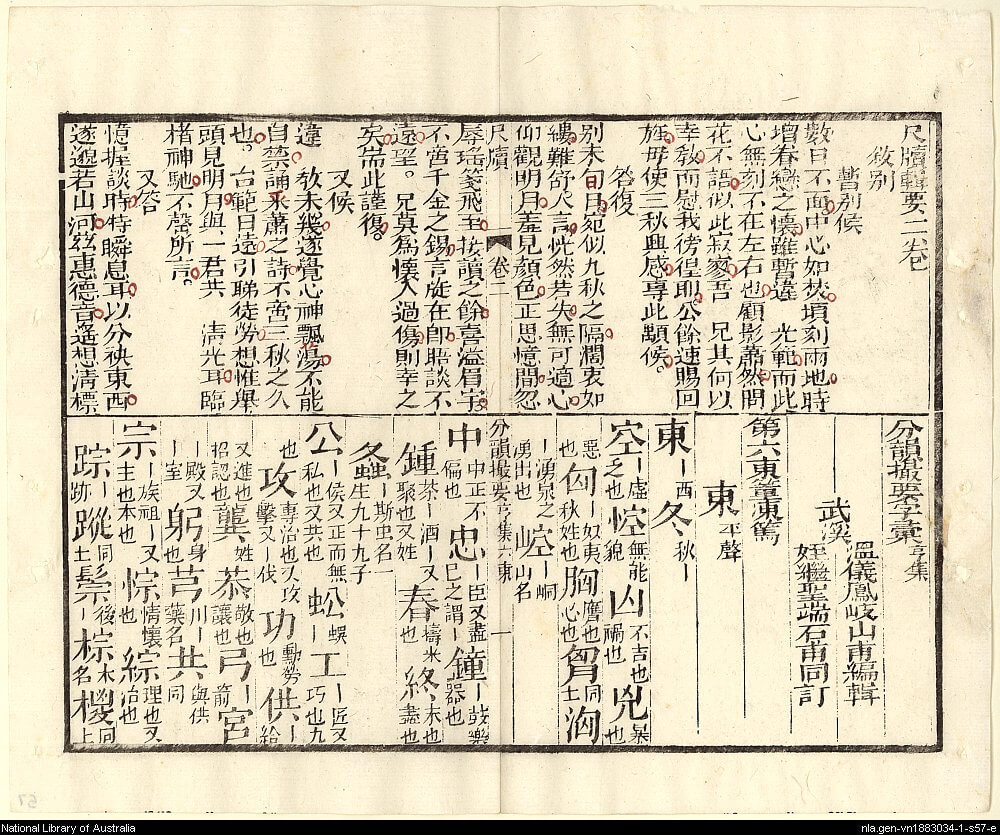 尺牘輯要二卷
敘別
暫別候
數日不面中心如焚頃刻兩地時
增眷戀之懷雖暫違 光範而此
心無刻不在左右也顧影蕭然問
花不語似此寂寥吾 兄其何以
幸教而慰我徬徨耶公餘速賜回
旌毋使三秋興感專此顒候
答復
別未旬日宛似九秋之隔闊衷如
縷難舒人言恍然若失無可適心
仰觀明月羞見顏色正思憶間忽
尺牘 卷二
辱瑤箋飛至捧讀之餘喜溢眉宇
不啻千金之錫言旋在即晤談不
遠望。兄莫為懷人過傷則幸之
矣耑此謹復。
又候
違 教未幾遂覺心神飄蕩不能
自禁誦釆蕭之詩不啻三秋之久
也。台範日遠引睇徒勞想惟舉
頭見明月與一君共 清光耳臨
楮神馳不罄所言。
又答
憶握談時特瞬息耳以分袂東西
遂邈若山河茲惠德音遙想清標
分韻撮要字彙亨集
武溪
溫儀鳳岐山甫編輯
姪繼聖端石甫同訂
第六東董凍篤
東平聲
東丨西 冬秋丨
空丨虛之也 悾無能貌 凶不吉也禍也 兇暴也
惡也 匈丨奴夷秋姓也 胸膺也心也 胷同上 洶
丨湧泉之湧出也 崆丨峒山名
分韻撮要亨集 六東 一
中中正不偏也 忠丨臣又盡己之謂丨 鐘丨鼓樂器也
鍾丨茶丨酒又聚也又姓 春擣米也 終末也盡也
螽丨斯虫名一生九十九子
公丨侯又正而無私也又共也 蚣丨蜈 工丨匠又巧也九
也 攻專治也又攻擊又丨伐 功動勞也 供丨給
又進也招認也 龔姓 恭敬也讓也 弓丨箭 宮
丨殿又丨室 躬身 芎川丨藥名 共與供同
宗丨族祖丨又主也本也 悰情懷也 綜理也又治也
踪丨跡 蹤同上 鬃後丨 棕木名 椶同上
National Library of Australia
nla.gen-vn1883034-1-s57-e